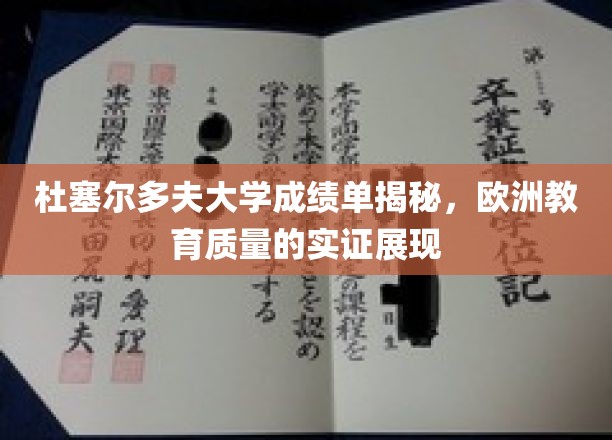 杜塞尔多夫大学成绩单揭秘，欧洲教
育质量的实证展现
第 号
卒業証 学位記
本学商学部 定の課程を
修めて本学 ことを認め
学士(商学)の学 する
平成
東京国際大 村愛理
東京国際大 長田尻嗣夫